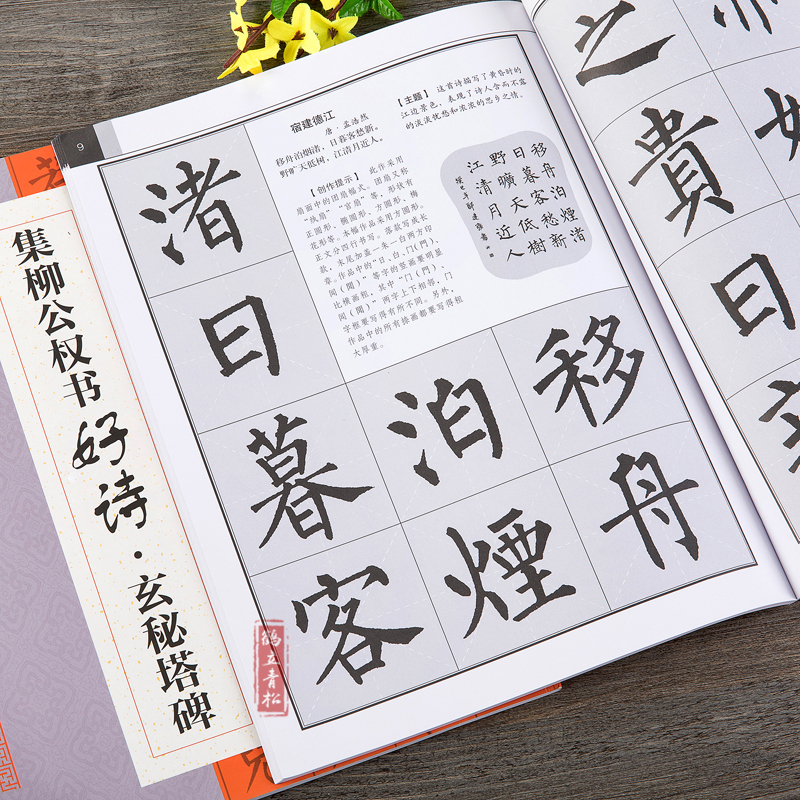 集柳公权书好诗·玄秘塔碑
9
宿建德江
唐·孟浩然
移舟泊烟渚，日暮客愁新。
野旷天低树，江清月近人。
【主题】 这首诗描写了黄昏时的
江边景色，表现了诗人含而不露
的淡淡忧愁和浓浓的思乡之情。
【创作提示】 此作采用
扇面中的团扇幅式。团扇又称
“纨扇”“宫扇”等，形状有
正圆形、椭圆形、方圆形、梅
花形等。本幅作品采用方圆形，
正文分四行书写。落款写成长
款，末尾加盖一朱一白两方印
章。作品中的“日、白、门（門）、
间（間）”等字的竖画要明显
比横画粗，其中“门（門）、
间（間）”两字上下相邻，门
字框要写得有所不同。另外，
作品中的所有捺画都要写得粗
大厚重。
移舟泊煙渚
日暮客愁新
野曠天低樹
江清月近人
移舟
泊煙
渚日暮客
之
貴
日
鹤立青松